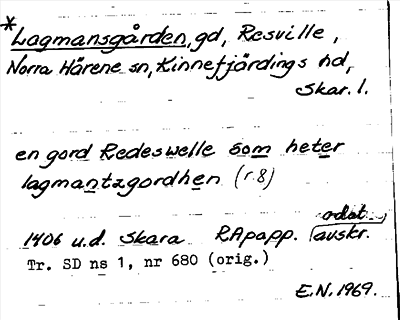 *Lagmansgården, gd, Resville,
Norra Härene sn, Kinnefjärdings hd,
Skar. l.
en gord Redeswelle som heter
lagmantzgordhen (r 8)
odat.
1406 u.d. Skara RApapp. avskr.
Tr. SD ns 1, nr 680 (orig.)
E.N. 1969.